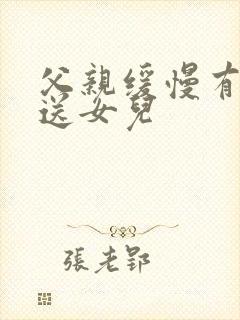 父親緩慢有
送女兒
張老郢